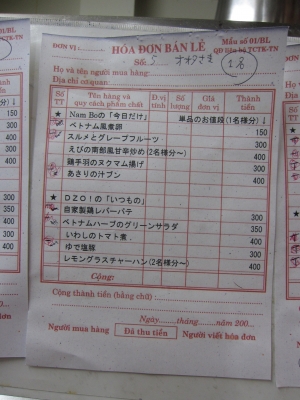 ĐƠN VỊ
HÓA ĐƠN BÁN LẺ
Mẫu số 01/BL
QĐ liên bộ TCTK-TN
Số: 5
1名
Họ và tên người mua hàng:
Địa chỉ cơ quan:
Số TT
Tên hàng và quy cách phẩm chất
D.V tính
Số lượng
Giá đơn vị
Thành tiền
★ Nam Boの「今日だけ」 単品のお値段(1名様分)↓
ベトナム風煮卵 150
スルメとグレープフルーツ 300
えびの南部風甘辛炒め(2名様分〜) 400
鶏手羽のヌクマム揚げ 300
あさりの汁ブン 400
★ DZO!の「いつもの」
自家製鶏レバーパテ 300
ベトナムハーブのグリーンサラダ 350
いわしのトマト煮 400
ゆで塩豚 300
レモングラスチャーハン(2名様分〜) 400
Cộng:
Cộng thành tiền (bằng chữ)
Ngày......tháng......năm 200...
Người mua hàng
Đã thu tiền
Người viết hóa đơn